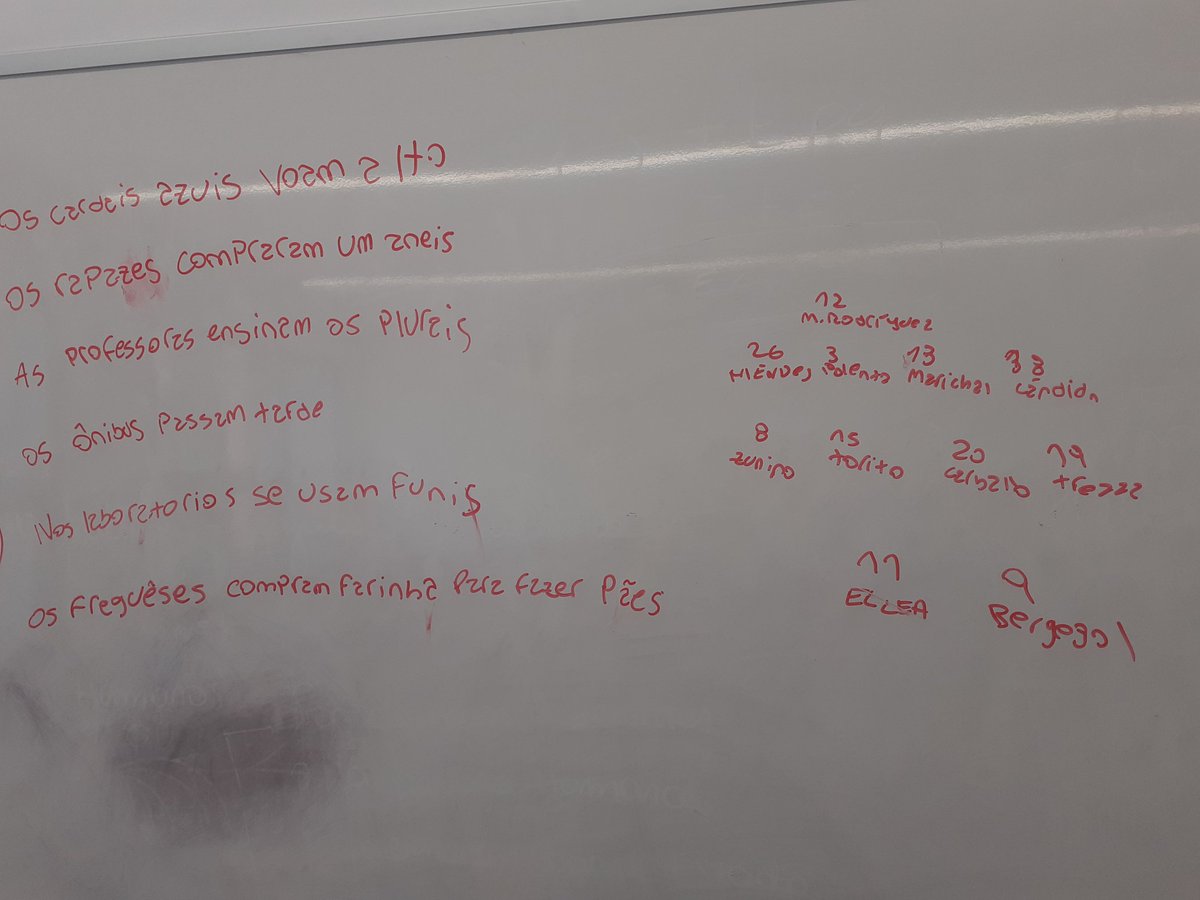 Os cardeis azuis voam alto
os rapazes compraram um aneis
As professoras ensinam os plurais
os ônibus passam tarde
Nos laboratorios se usam funis
os freguêses compram farinha para fazer pães
12
M. Rodriguez
26 3 13 8
MÉNDES Polenta Marichal Cándida
8 15 20 19
zunino torito carballo trezza
11 9
ELLEA Bergegol